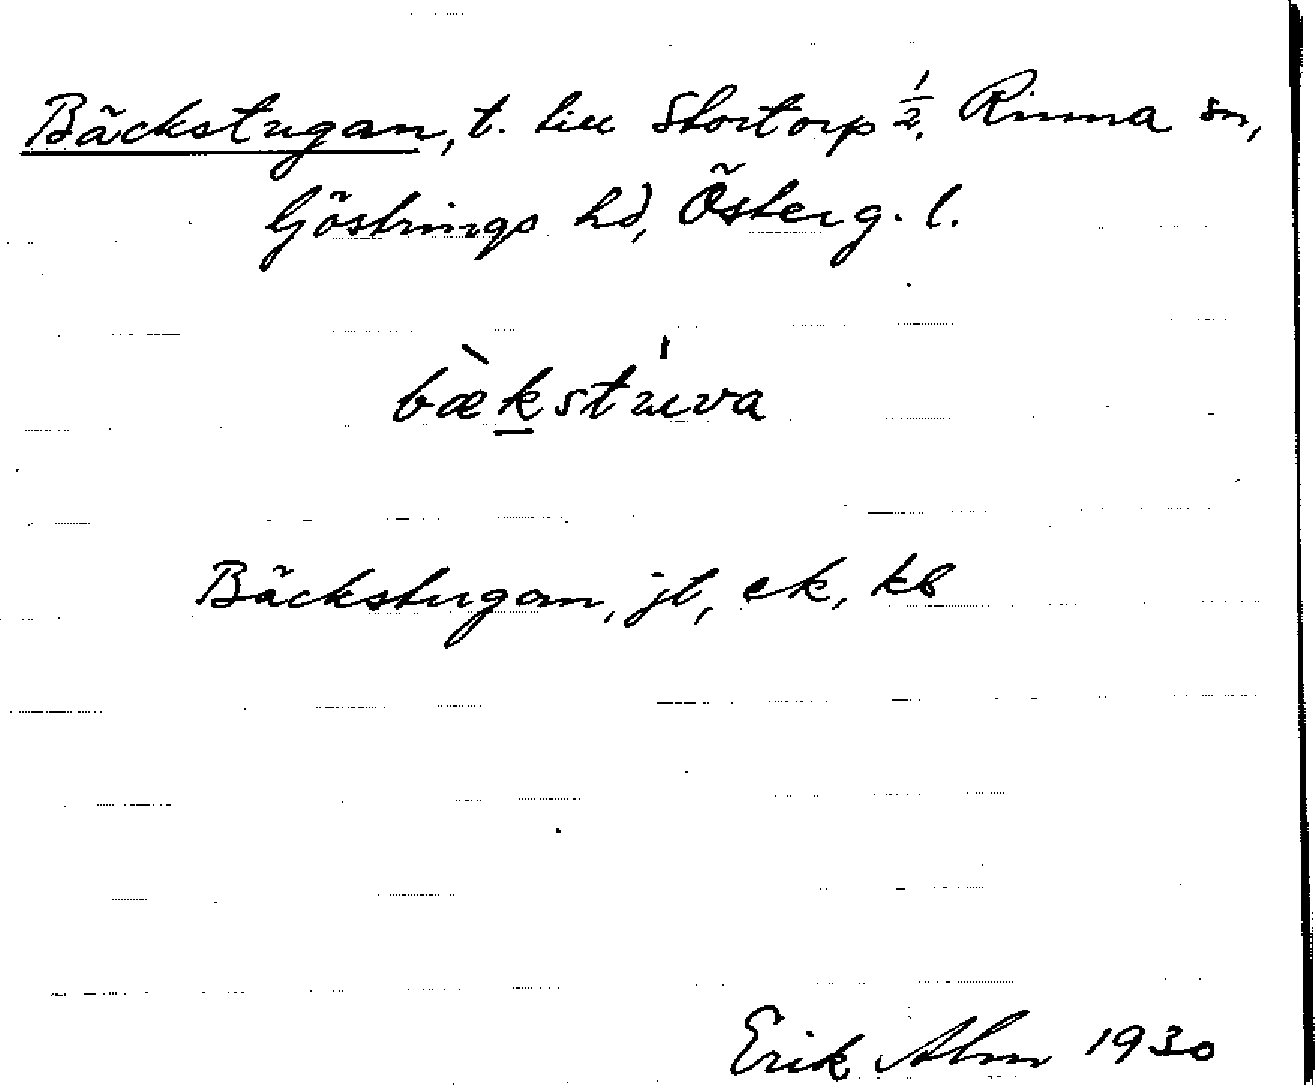 Bäckstugan, t. till Stortorp 1/2, Rinna sn,
Göstrings hd, Österg. l.
bæ̀kstu̍va
Bäckstugan, jb, ek, kb
Erik Alm 1930